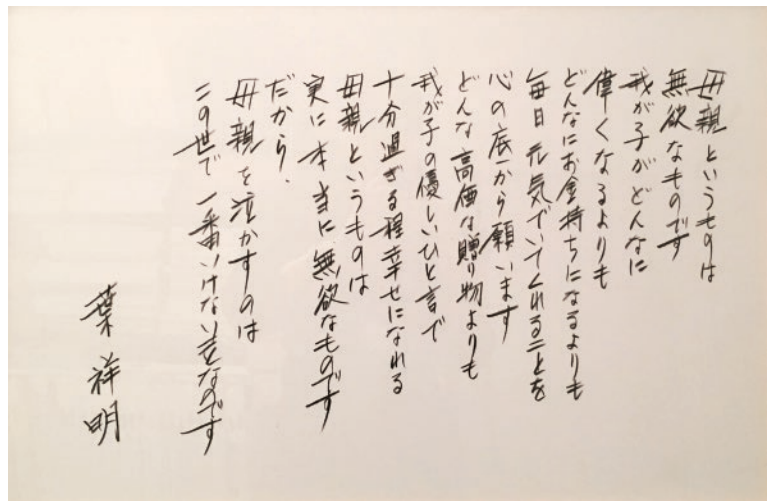 母親というものは
無欲なものです
我が子がどんなに
偉くなるよりも
どんなにお金持ちになるよりも
毎日元気でいてくれることを
心の底から願います
どんな高価な贈り物よりも
我が子の優しいひと言で
十分過ぎる程幸せになれる
母親というものは
実に本当に無欲なものです
だから、
母親を泣かすのは
この世で一番いけない事なのです
葉祥明